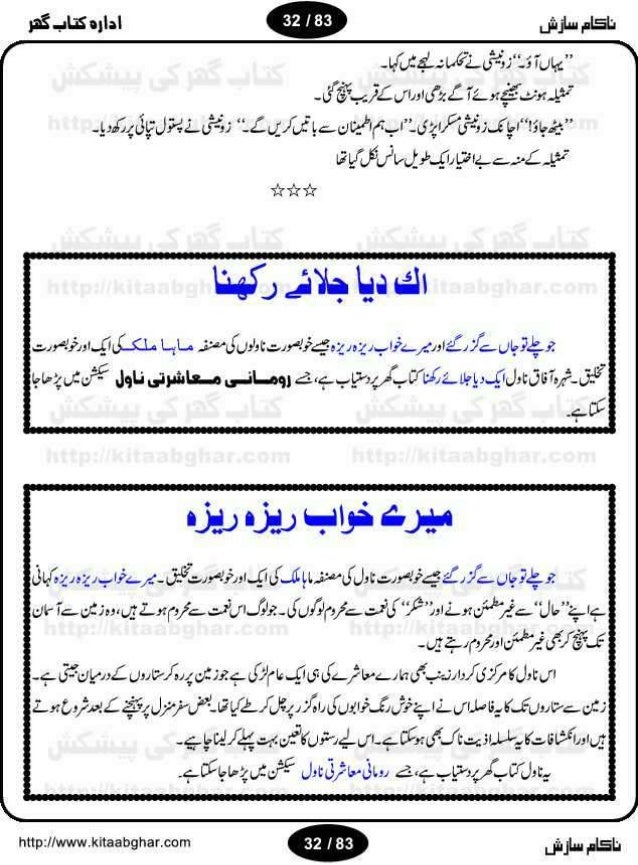 ناکام سازش
32 / 83
ادارہ کتاب گھر
’’یہاں آؤ۔‘‘ زونیشی نے تحکمانہ لہجے میں کہا۔
تمثیلہ ہونٹ بھینچے ہوئے آگے بڑھی اور اس کے قریب پہنچ گئی۔
’’بیٹھ جاؤ!‘‘ اچانک زونیشی مسکرا پڑی۔ ’’اب ہم اطمینان سے باتیں کریں گے۔‘‘ زونیشی نے پستول تپائی پر رکھ دیا۔
تمثیلہ کے منہ سے بے اختیار ایک طویل سانس نکل گیا تھا
☆☆☆
اک دیا جلائے رکھنا
جو چلے تو جاں سے گزر گئے اور میرے خواب ریزہ ریزہ جیسے خوبصورت ناولوں کی مصنفہ ماہا ملک کی ایک اور خوبصورت
تخلیق۔ شہرہ آفاق ناول ایک دیا جلائے رکھنا کتاب گھر پر دستیاب ہے، جسے رومانی معاشرتی ناول سیکشن میں پڑھا جا
سکتا ہے۔
میرے خواب ریزہ ریزہ
جو چلے تو جاں سے گزر گئے جیسے خوبصورت ناول کی مصنفہ ماہا ملک کی ایک اور خوبصورت تخلیق۔ میرے خواب ریزہ ریزہ کہانی
ہے اپنے ’’حال‘‘ سے غیر مطمئن ہونے اور ’’شکر‘‘ کی نعمت سے محروم لوگوں کی۔ جو لوگ اس نعمت سے محروم ہوتے ہیں، وہ زمین سے آسمان
تک پہنچ کر بھی غیر مطمئن اور محروم رہتے ہیں۔
اس ناول کا مرکزی کردار زینب بھی ہمارے معاشرے کی ہی ایک عام لڑکی ہے جو زمین پر رہ کر ستاروں کے درمیان جیتی ہے۔
زمین سے ستاروں تک کا یہ فاصلہ اس نے اپنے خوش رنگ خوابوں کی راہ گزر پر چل کر طے کیا تھا۔ بعض سفر منزل پر پہنچنے کے بعد شروع ہوتے
ہیں اور انکشافات کا یہ سلسلہ اذیت ناک بھی ہو سکتا ہے۔ اس لیے رستوں کا تعین بہت پہلے کر لینا چاہیے۔
یہ ناول کتاب گھر پر دستیاب ہے، جسے رومانی معاشرتی ناول سیکشن میں پڑھا جا سکتا ہے۔
ناکام سازش
32 / 83
http://www.kitaabghar.com